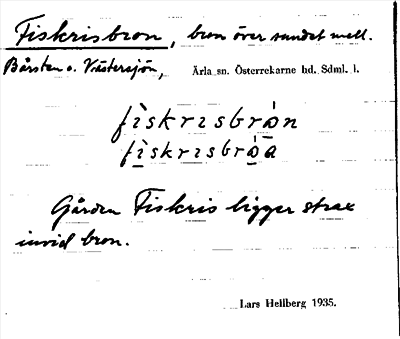 Fiskrisbron, bron över sundet mell.
Bårsten o. Västersjön, Ärla sn. Österrekarne hd. Sdml. l.
fìskrɪsbrán
fìskrɪsbróa
Gården Fiskris ligger strax
invid bron.
Lars Hellberg 1935.